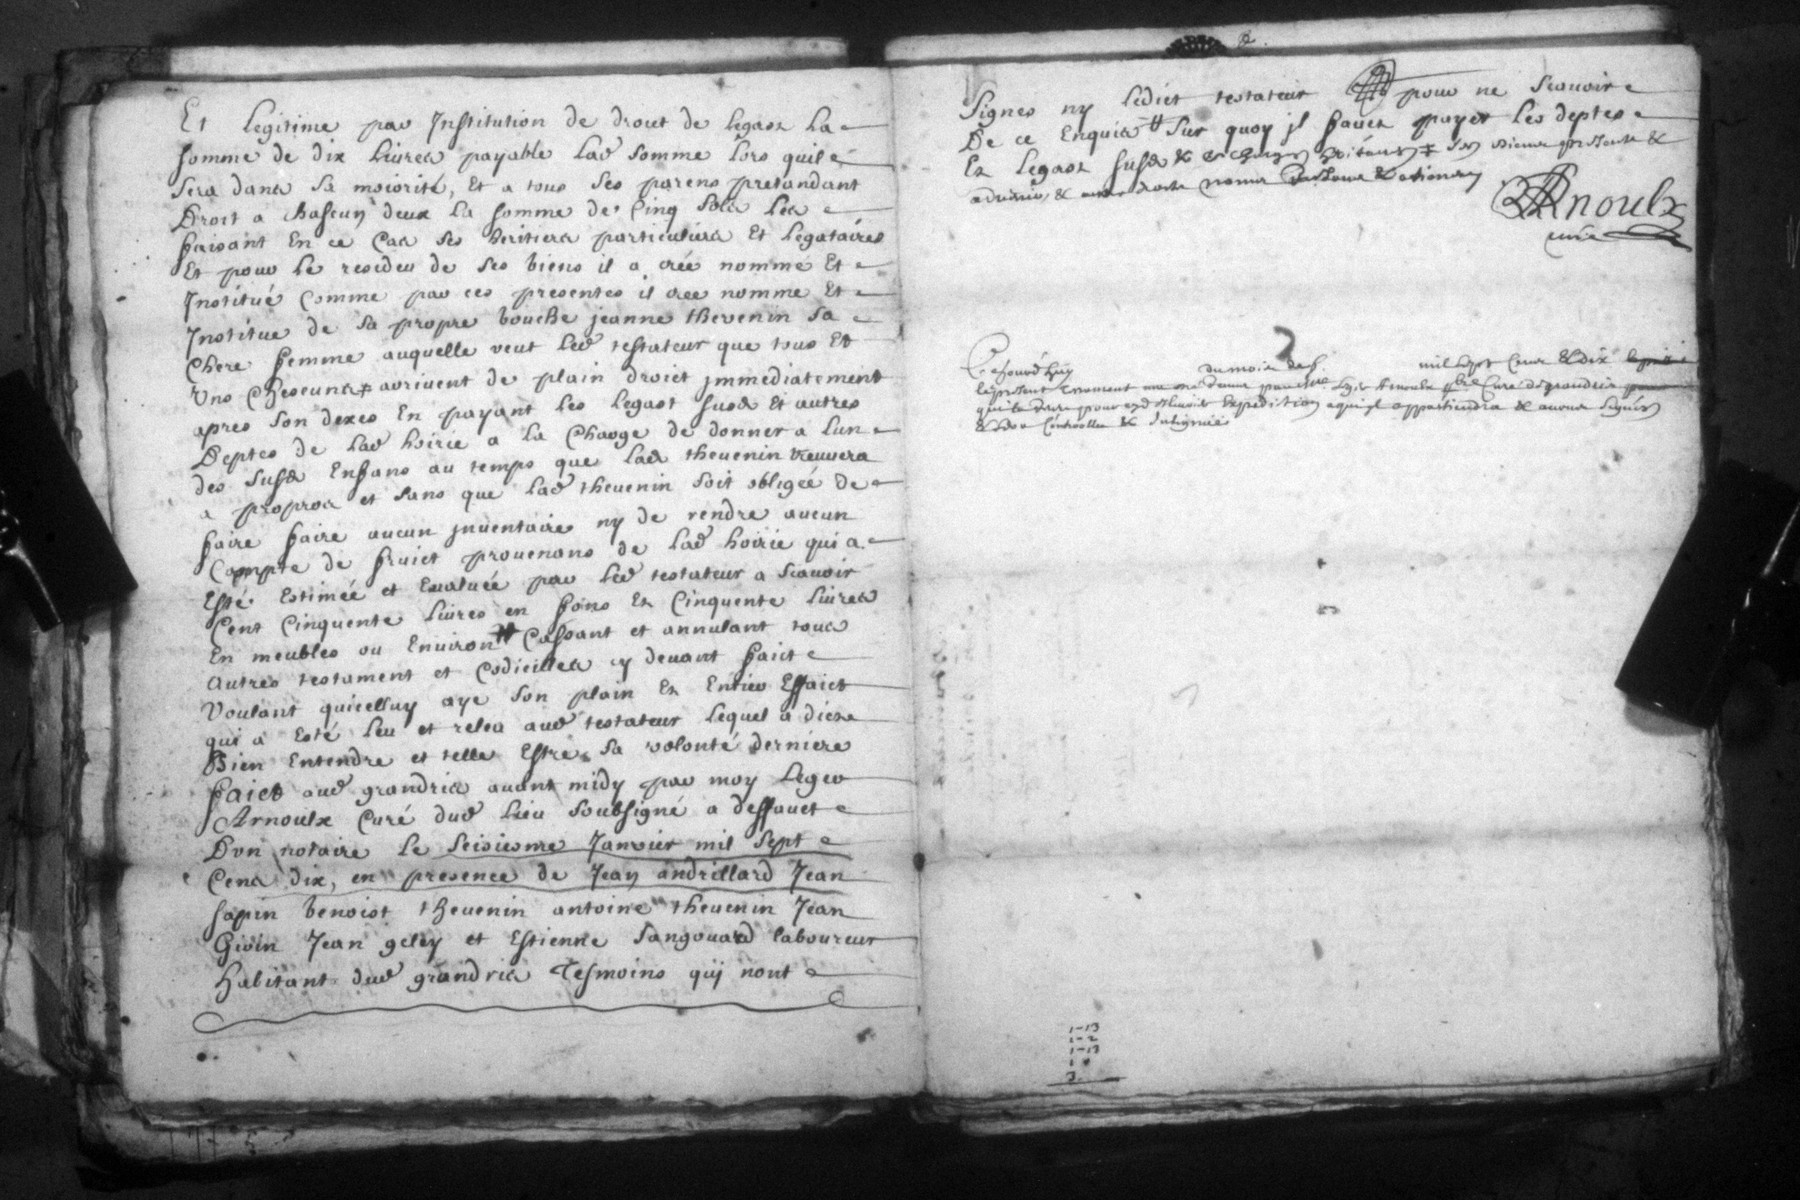 Et Legitime par Institution de droit de legast La
somme de dix Livres payable Lad somme lors quil
sera dans sa majorité, Et a tous ses parens pretandant
Droit a Chascun deux La somme de Cinq solz Les
faisant En ce Cas ses heritiers particuliers Et Legataires
Et pour Le resideu de ses biens il a crée nommé Et
Institué Comme par ces presentes il crée nomme Et
Institue de sa propre bouche jeanne thevenin sa
chere femme auquelle veut Led testateur que tous Et
Uns Chescuns arrivent de plain droict jmmediatement
apres son deces En payant Les Legast susd Et autres
Deptes de Lad hoirie a La Charge de donner a Lun
des susd Enfans au temps que Lad thevenin treuvera
a propros et sans que Lad thevenin soit obligée de
faire faire aucun jnventaire ny de rendre aucun
Compte de fruict provenans de Lad hoirie qui a
Esté Estimée et Evaluée par Led testateur a scavoir
Cent Cinquente Livres en fons Et Cinquente Livres
En meubles ou Environ Cassant et annulant tous
autres testament et Codicilles cy devant faict
Voulant quicelluy aye son plain Et Entier Effaict
qui a Esté Leu et releu aud testateur Lequel a dict
Bien Entendre et telle Estre sa volonté derniere
faict aud grandris avant midy par moy Leger
Arnoulx Curé dud Lieu soubsigné a deffauct
Dun notaire Le seisiesme Janvier mil sept
Cens dix, en presence de Jean andrillard Jean
sapin benoist thevenin antoine thevenin Jean
Givin Jean geley et Estienne sangouard laboureur
Habitant dud grandris Tesmoins quj nont
Signes ny Ledict testateur pour ne scavoir
De ce Enquis Sur quoy jl faudra payer Les deptes
Et Legast susd &
Arnoulx
curé
Cejourd'huy du mois de mil sept Cens & dix
Le present testament par Leger Arnoulx Curé de grandris
expedition a qui jl appartiendra &
Controller &
1-13
1-2
1-13
1
3